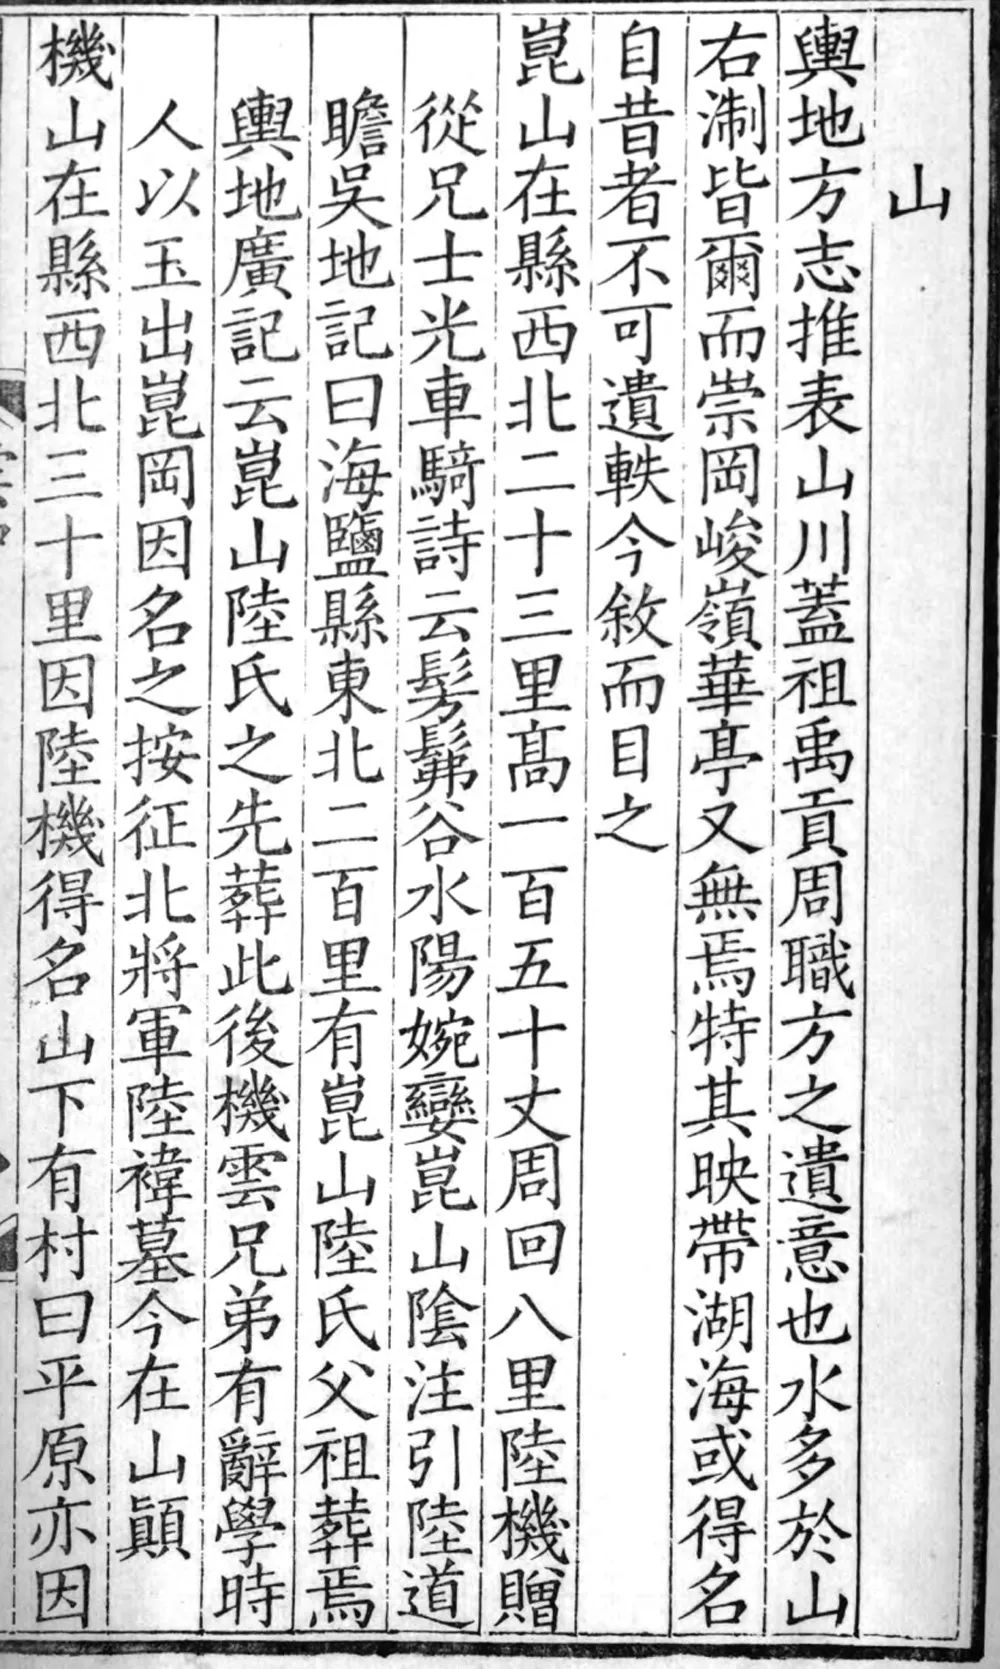 山
輿地方志推表山川蓋祖禹貢周職方之遺意也水多於山
右淛皆爾而崇岡峻嶺華亭又無焉特其映帶湖海或得名
自昔者不可遺軼今敘而目之
崑山在縣西北二十三里高一百五十丈周回八里陸機贈
從兄士光車騎詩云髣髴谷水陽婉孌崑山陰注引陸道
瞻吳地記曰海鹽縣東北二百里有崑山陸氏父祖葬焉
輿地廣記云崑山陸氏之先葬此後機雲兄弟有辭學時
人以玉出崑岡因名之按征北將軍陸禕墓今在山顚
機山在縣西北三十里因陸機得名山下有村曰平原亦因